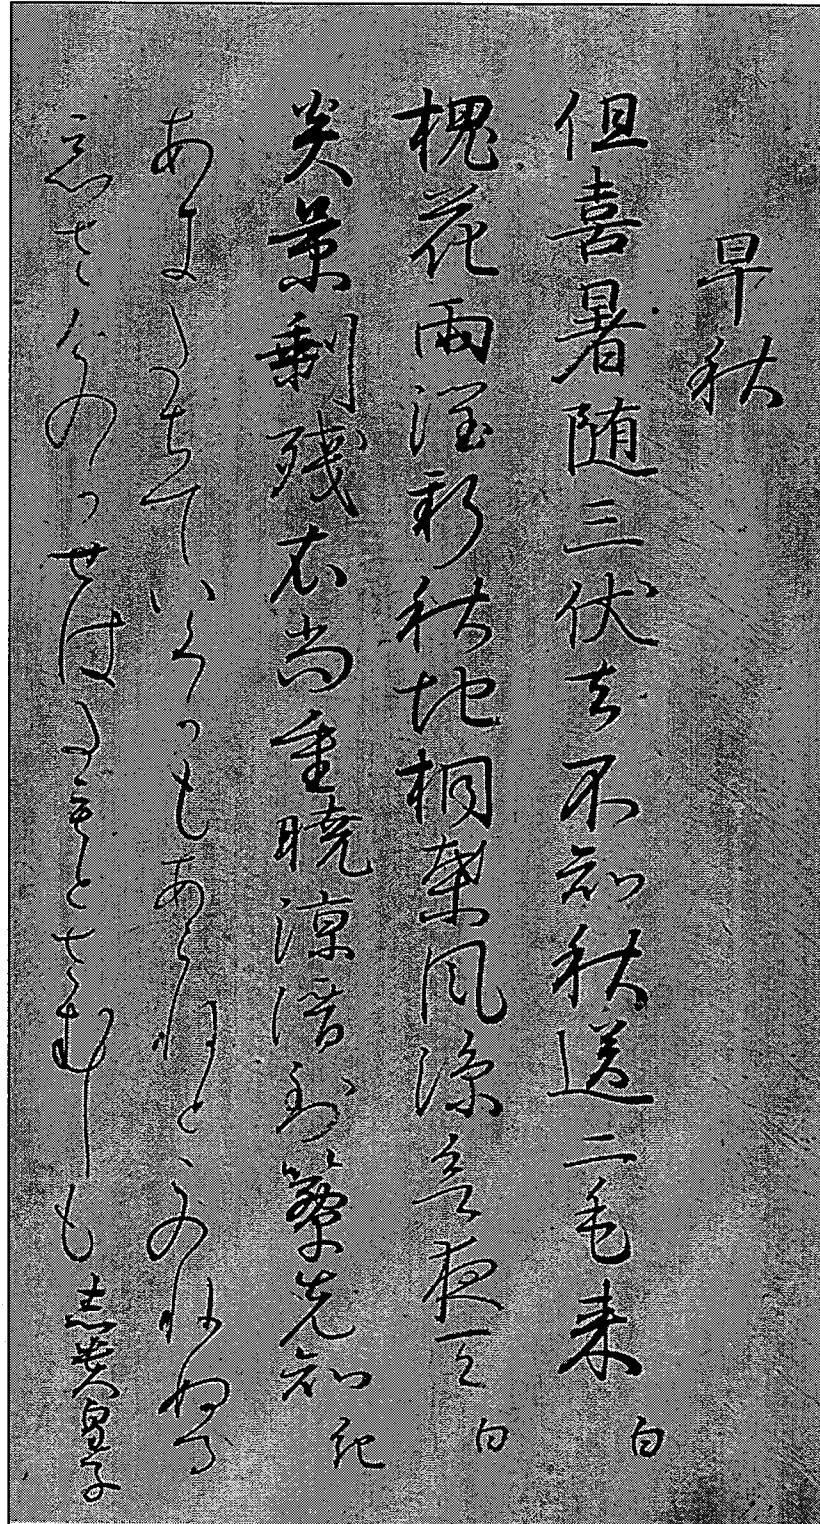 早秋
但喜暑随三伏去不知秋送二毛来 白
槐花雨潤新秋地桐葉風涼欲夜天 白
炎景剰残衣尚重暁涼潜到簟先知 紀
あきたちていくかもあらねとこのねぬる
あさけのかせはたもとさむしも 志貴皇子